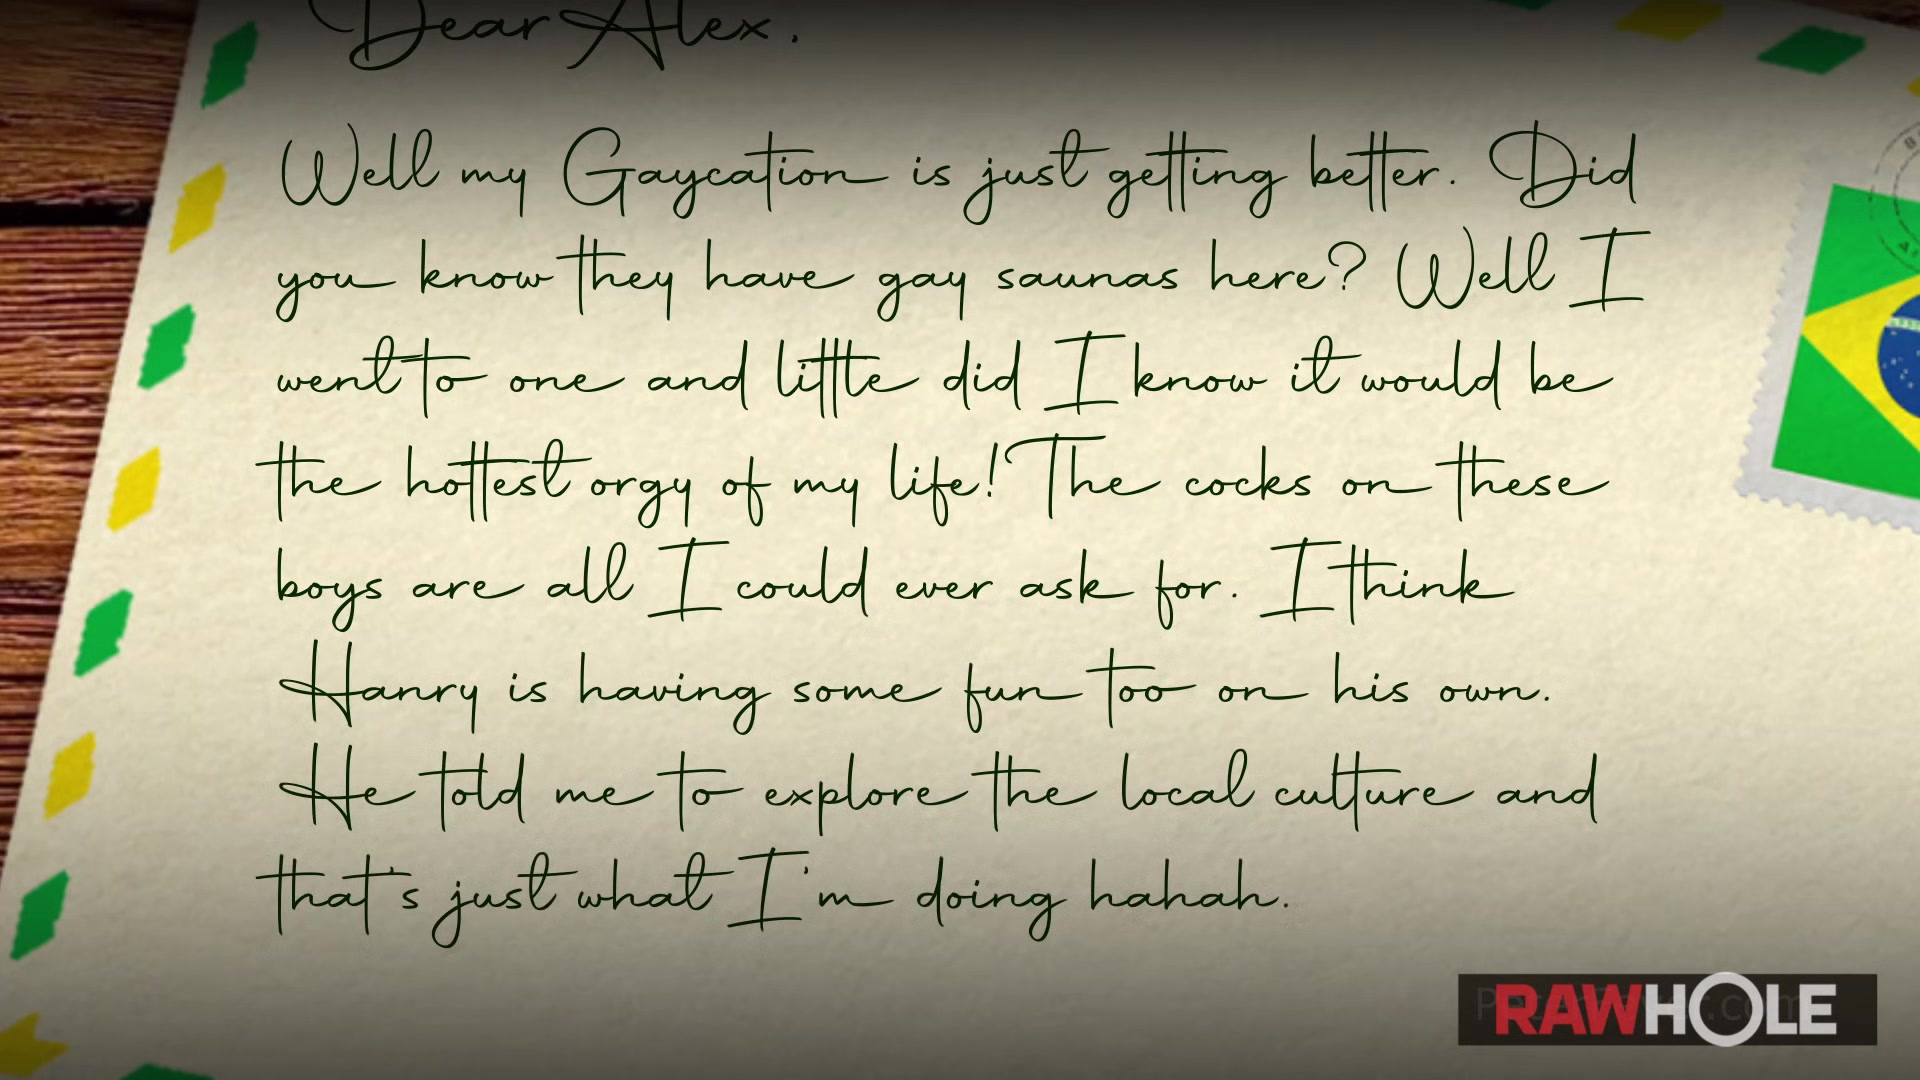 Dear Alex.
Well my Gaycation is just getting better. Did
you know they have gay saunas here? Well I
went to one and little did I know it would be
the hottest orgy of my life! The cocks on these
boys are all I could ever ask for. I think
Hanry is having some fun too on his own.
He told me to explore the local culture and
that's just what I'm doing hahah.
RAWHOLE